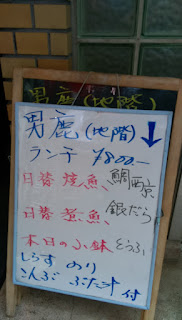 男鹿(地階)
男鹿(地階)↓
ランチ ¥800.-
日替 焼魚、鯛西京
日替 煮魚、銀だら
本日の小鉢 とうふ
しらす のり
こんぶ ぶた汁 付